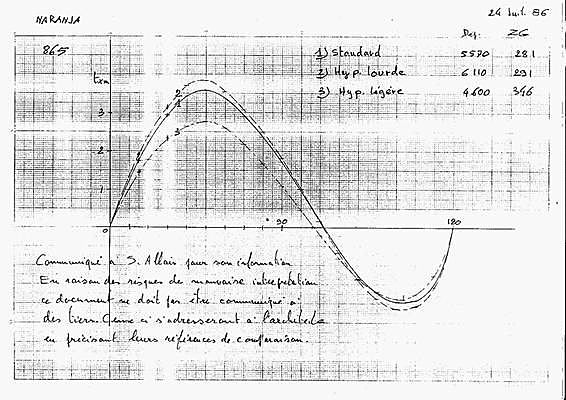 NARANJA
24 Juil. 86
865
Dep. ZG
1) Standard 5570 281
2) Hyp. lourde 6110 291
3) Hyp. légère 4600 346
txm
3
2
1
2
1
3
0
90
180
Communiqué à S. Allais pour son information
En raison des risques de mauvaise interprétation
ce document ne doit pas être communiqué à
des tiers. Ceux ci s'adresseront à l'architecte
en précisant leurs références de comparaison.